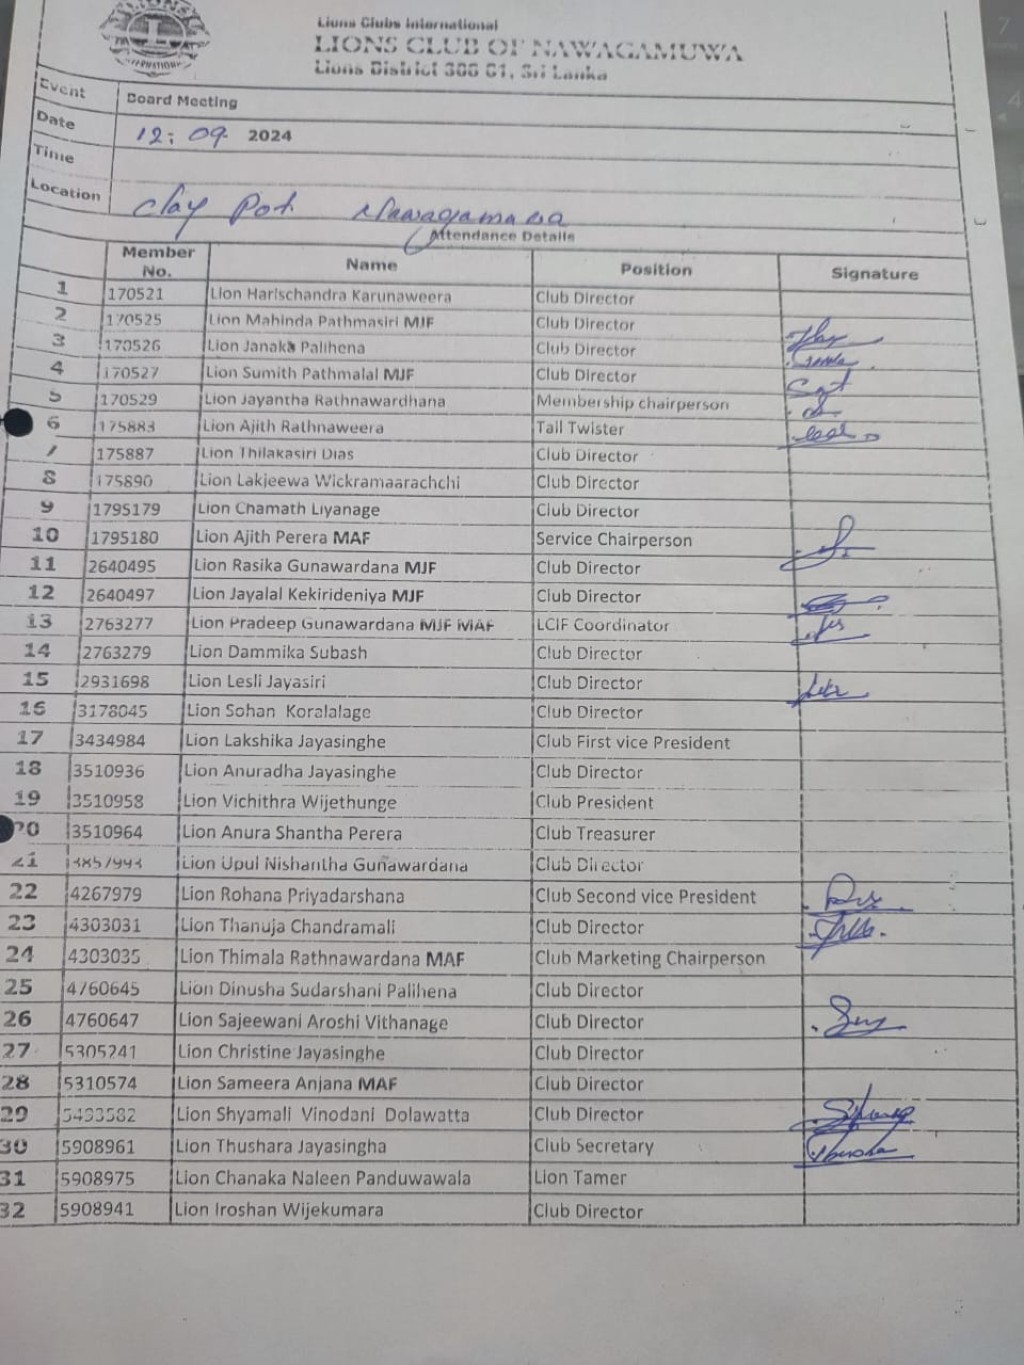 Lions Clubs International
LIONS CLUB OF NAWAGAMUWA
Lions District 306 C1, Sri Lanka
Event Board Meeting
Date 12: 09 2024
Time
Location Clay Pot. Nawagamuwa
Attendance Details
Member No. Name Position Signature
1 170521 Lion Harischandra Karunaweera Club Director
2 170525 Lion Mahinda Pathmasiri MJF Club Director
3 170526 Lion Janaka Palihena Club Director
4 170527 Lion Sumith Pathmalal MJF Club Director
5 170529 Lion Jayantha Rathnawardhana Membership chairperson
6 175883 Lion Ajith Rathnaweera Tail Twister
7 175887 Lion Thilakasiri Dias Club Director
8 175890 Lion Lakjeewa Wickramaarachchi Club Director
9 1795179 Lion Chamath Liyanage Club Director
10 1795180 Lion Ajith Perera MAF Service Chairperson
11 2640495 Lion Rasika Gunawardana MJF Club Director
12 2640497 Lion Jayalal Kekirideniya MJF Club Director
13 2763277 Lion Pradeep Gunawardana MJF MAF LCIF Coordinator
14 2763279 Lion Dammika Subash Club Director
15 2931698 Lion Lesli Jayasiri Club Director
16 3178045 Lion Sohan Koralalage Club Director
17 3434984 Lion Lakshika Jayasinghe Club First vice President
18 3510936 Lion Anuradha Jayasinghe Club Director
19 3510958 Lion Vichithra Wijethunge Club President
20 3510964 Lion Anura Shantha Perera Club Treasurer
21 Lion Upul Nishantha Gunawardana Club Director
22 4267979 Lion Rohana Priyadarshana Club Second vice President
23 4303031 Lion Thanuja Chandramali Club Director
24 4303035 Lion Thimala Rathnawardana MAF Club Marketing Chairperson
25 4760645 Lion Dinusha Sudarshani Palihena Club Director
26 4760647 Lion Sajeewani Aroshi Vithanage Club Director
27 5305241 Lion Christine Jayasinghe Club Director
28 5310574 Lion Sameera Anjana MAF Club Director
29 5493582 Lion Shyamali Vinodani Dolawatta Club Director
30 5908961 Lion Thushara Jayasingha Club Secretary
31 5908975 Lion Chanaka Naleen Panduwawala Lion Tamer
32 5908941 Lion Iroshan Wijekumara Club Director